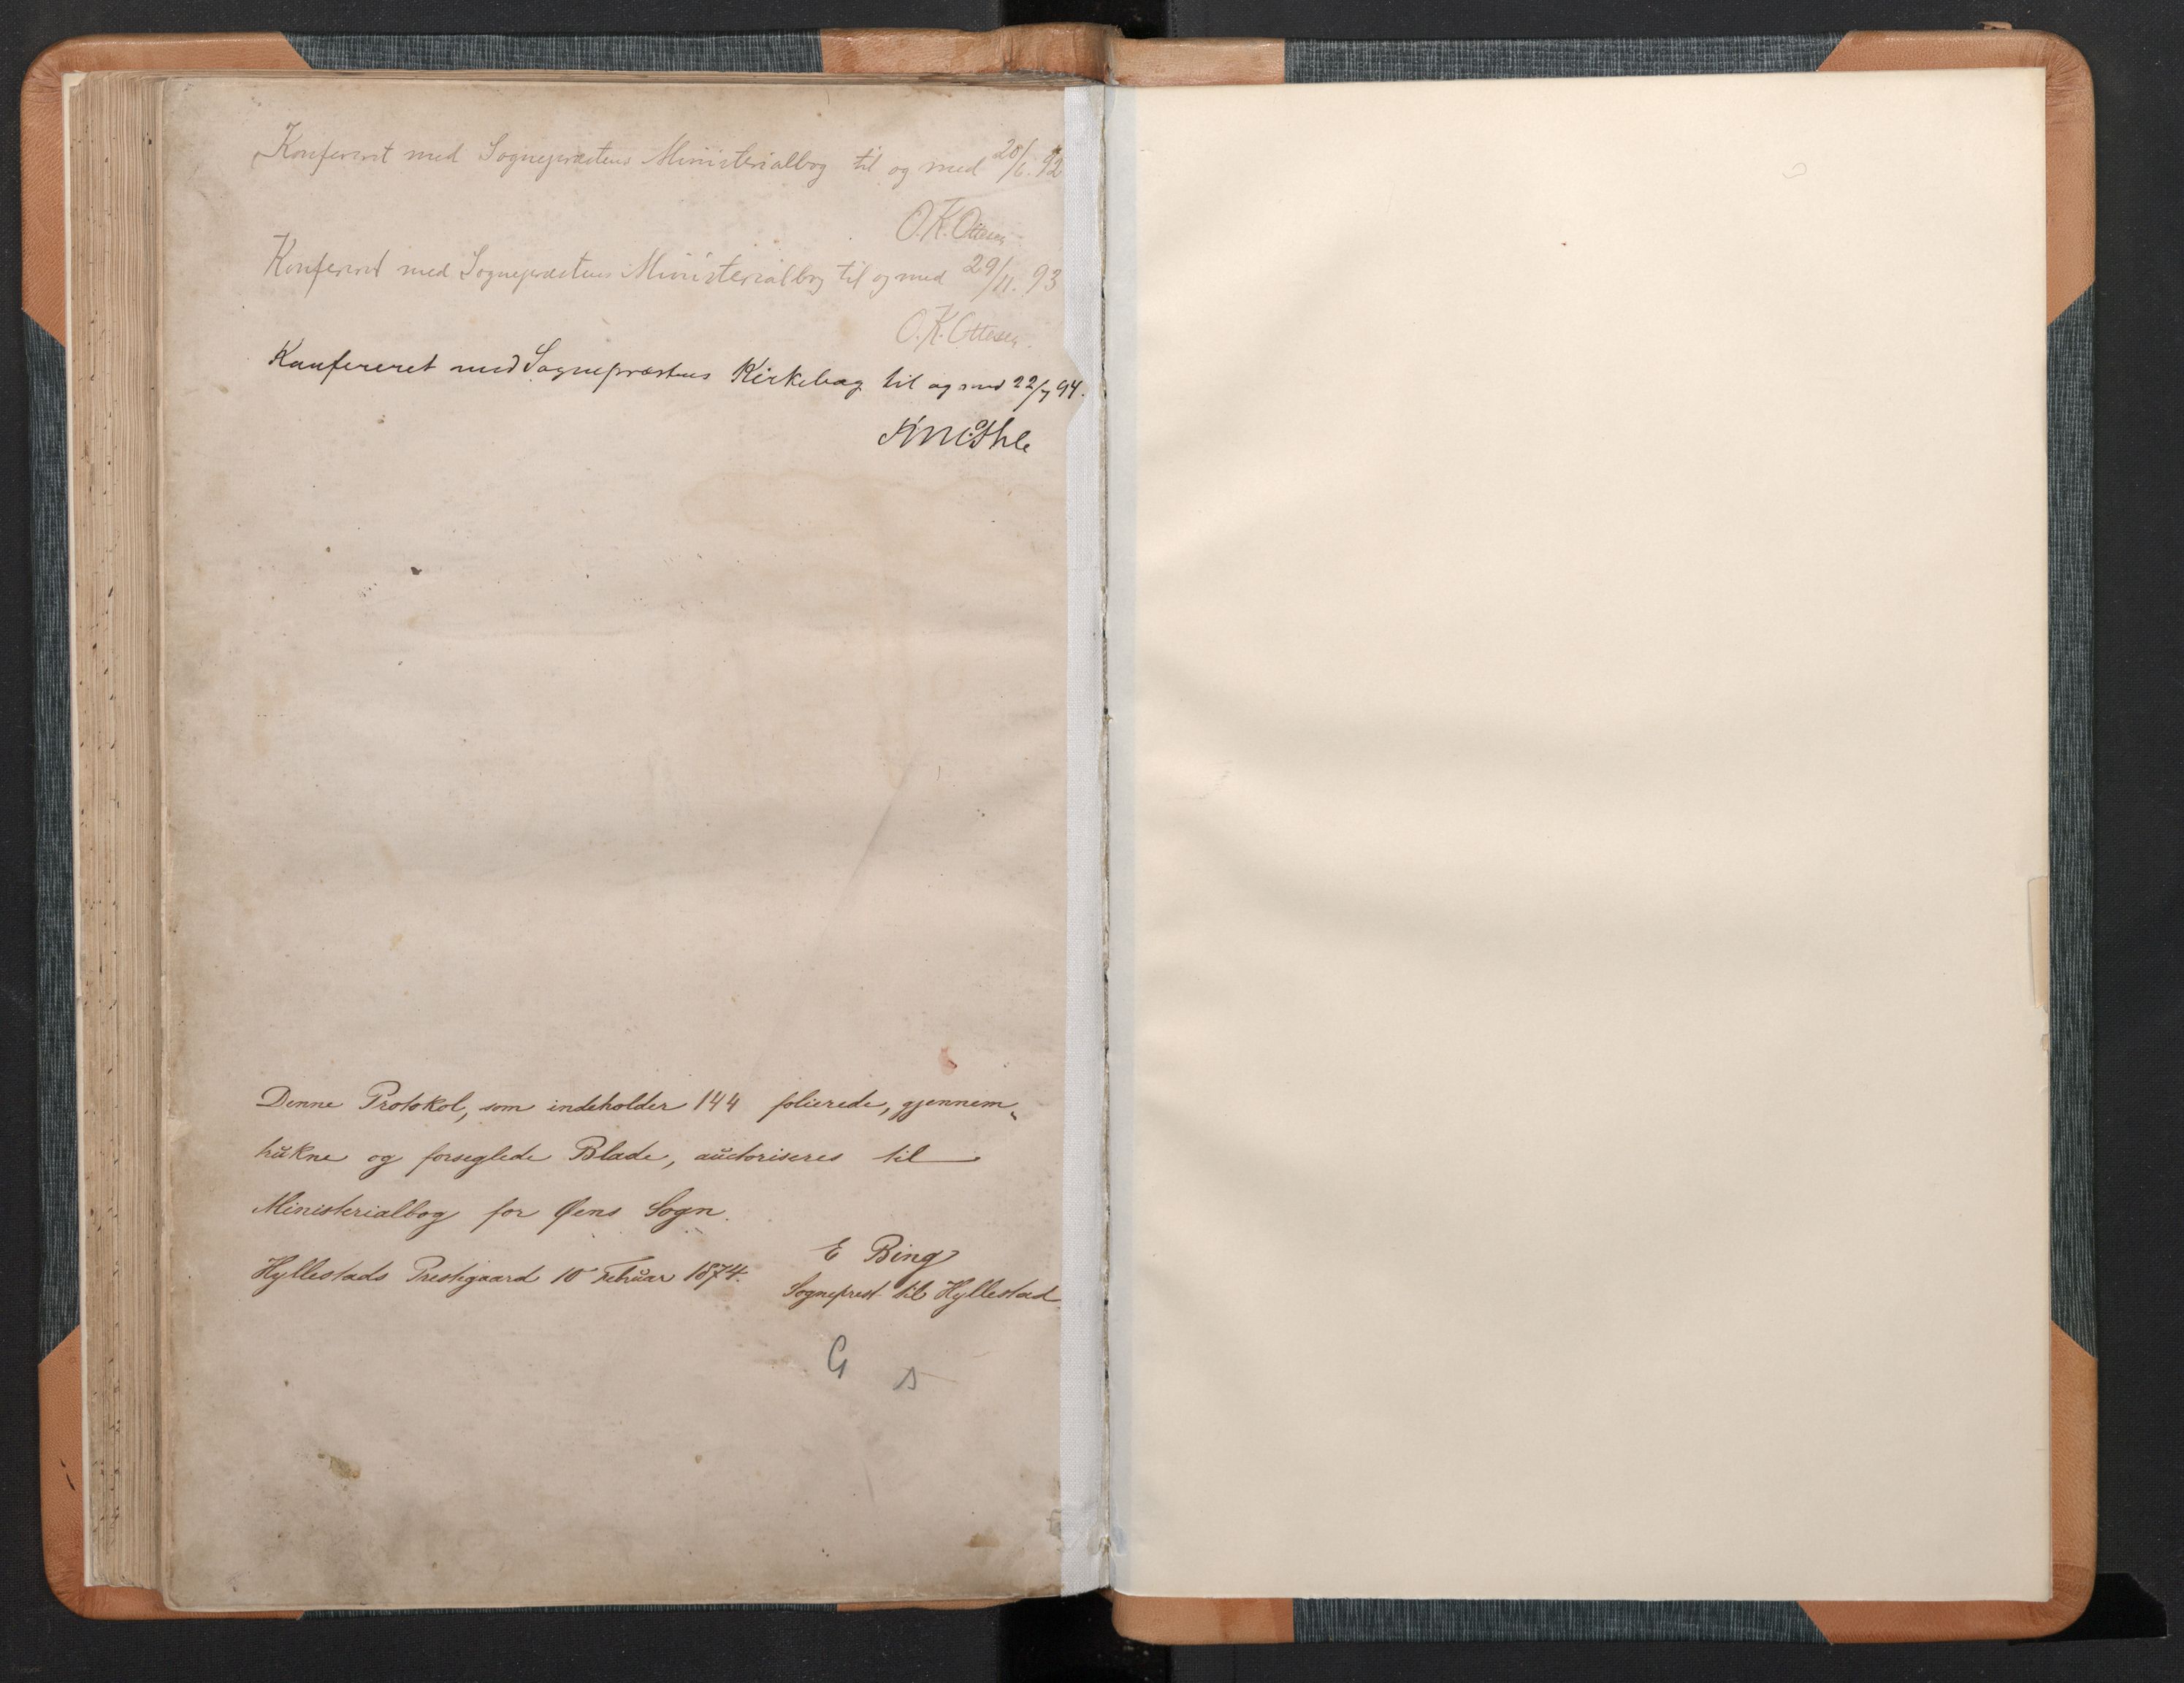 Konfereret med Sognepræstens Ministerialbog til og med 20/6. 92
O. K. Ottesen
Konfereret med Sognepræstens Ministerialbog til og med 29/11. 93
O. K. Ottesen.
Konfereret med Sognepræstens Kirkebog til og med 22/7 94.
Ihle
Denne Protokol, som indeholder 144 folierede, gjennem-
trukne og forseglede Blade, auctoriseres til
Ministerialbog for Øens Sogn.
Hyllestads Prestegaard 10 Februar 1874.
E Bing
Sogneprest til Hyllestad
G s